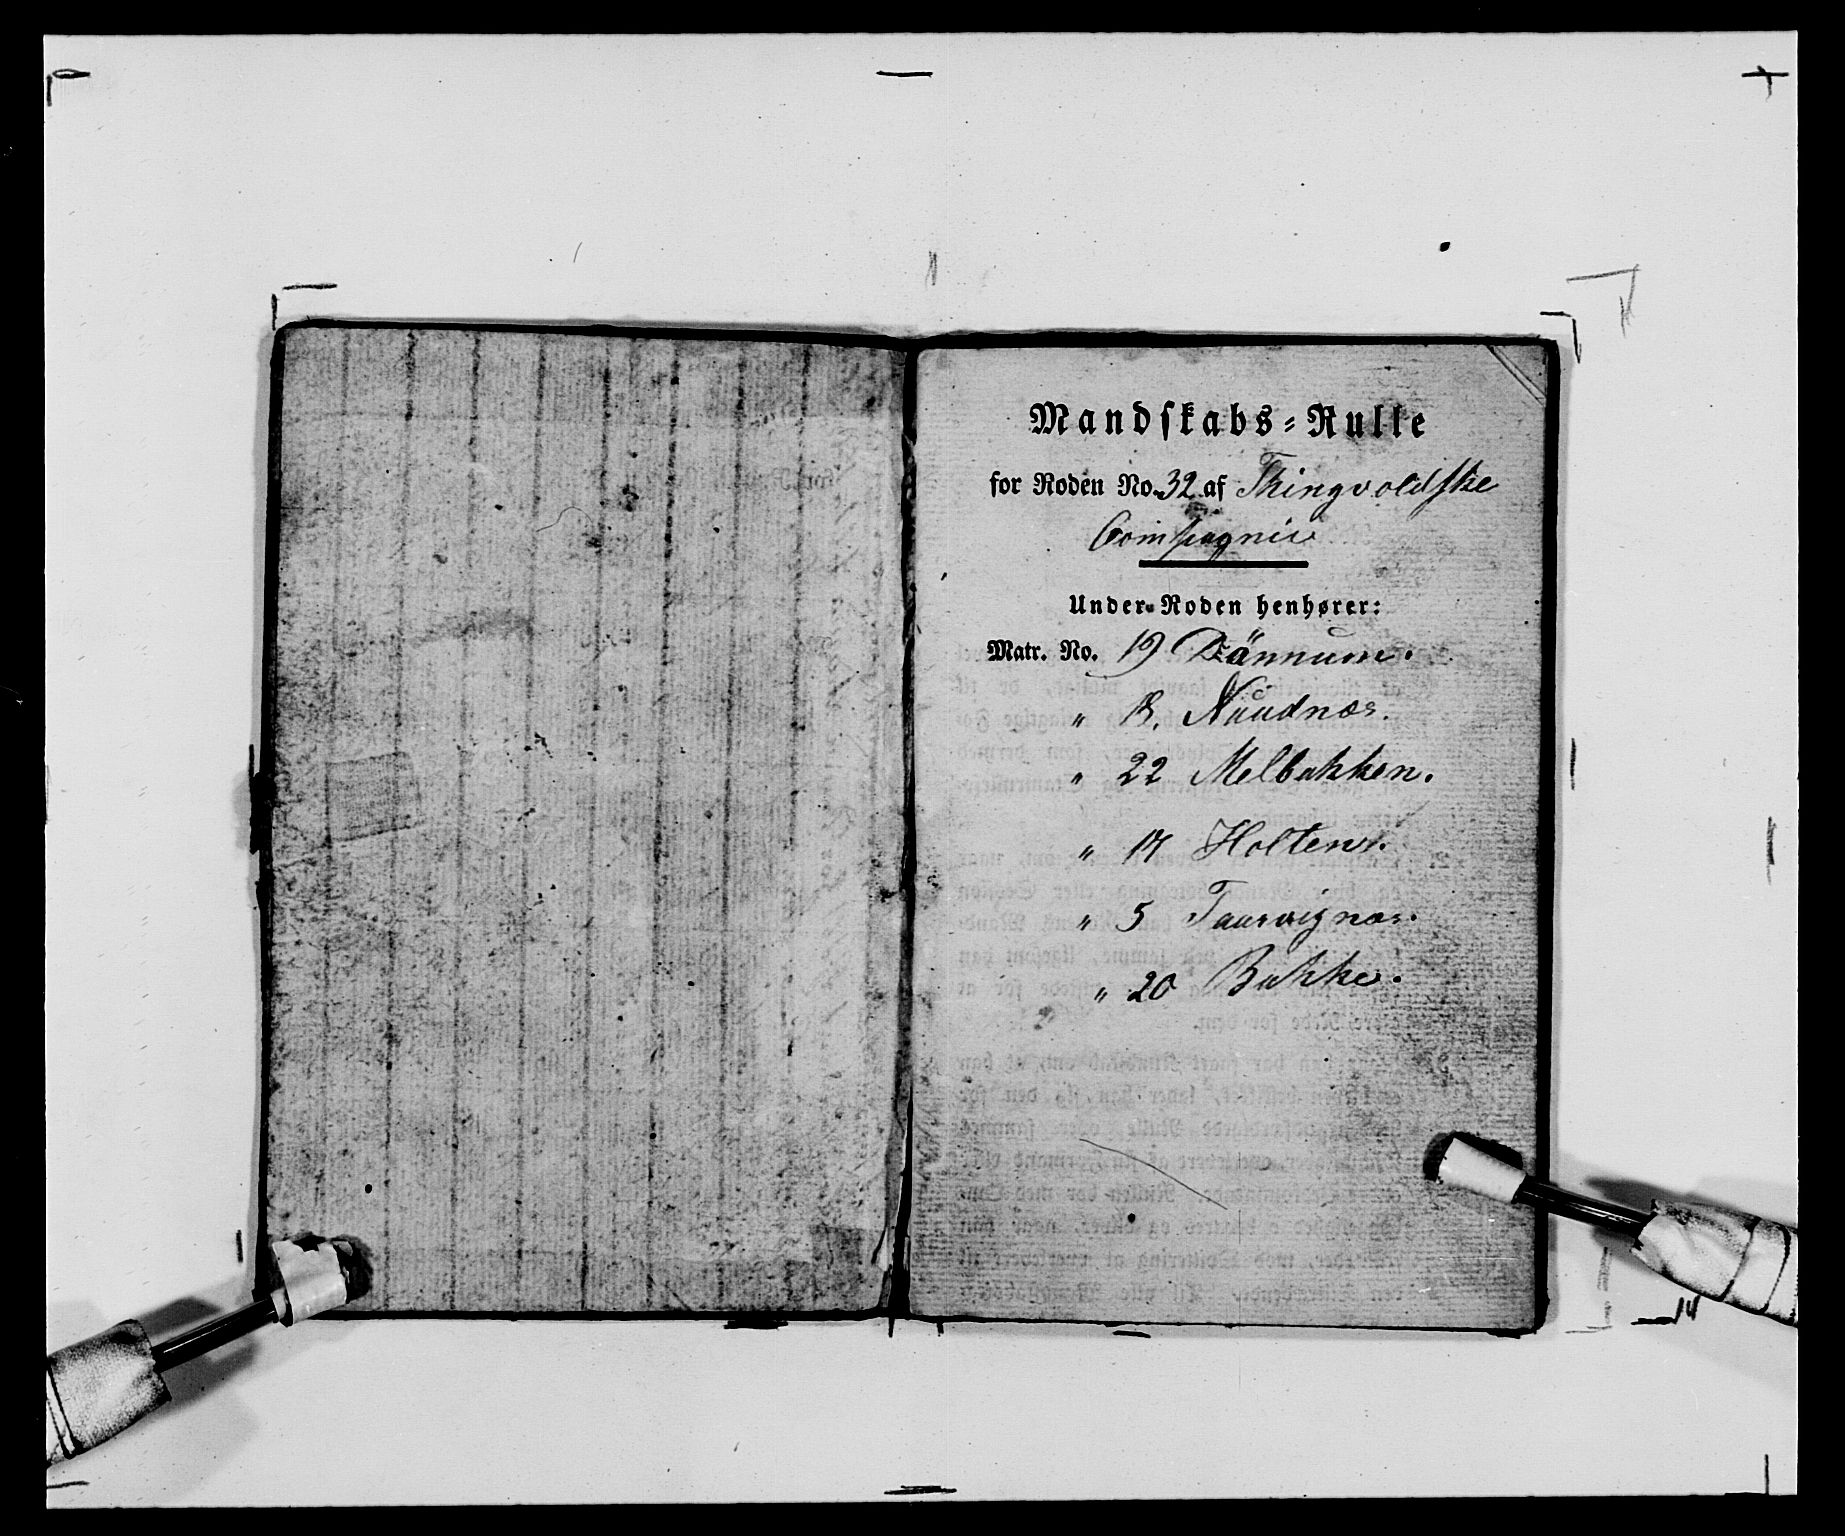 Mandskabs-Rulle
for Roden No. 32 af Thingvoldske
Compagnie
Under-Roden henhører:
Matr. No. 19 Dännum.
" 18. Naudnæs.
" 22 Melbakken.
" 17 Holten.
" 5 Taurvignæs.
" 20 Bakke.
14